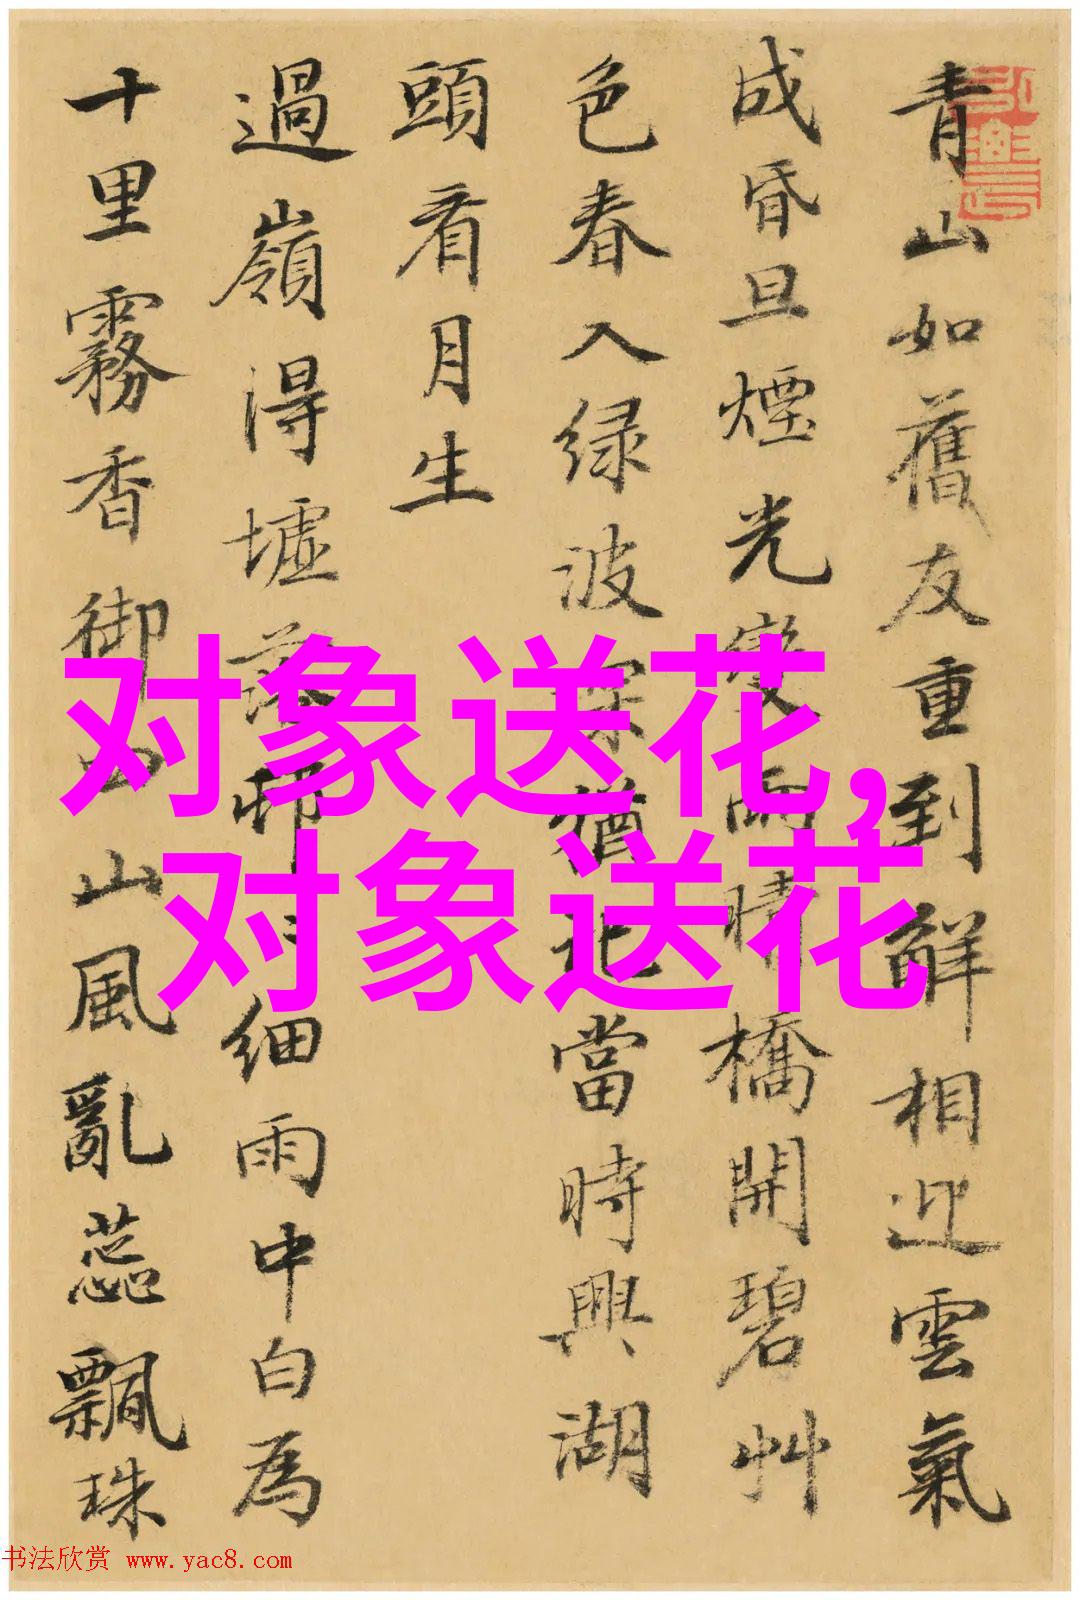 青山如舊友重到解相迎雲氣
成昏旦煙光變雨晴橋開碧艸
色春入绿波深猶北當時興湖
頭看月生
過嶺得墟落邨〻细雨中白為
十里霧香御四山風亂蕊飄珠
对象送花,
对象送花
书法欣赏 www.yac8.com